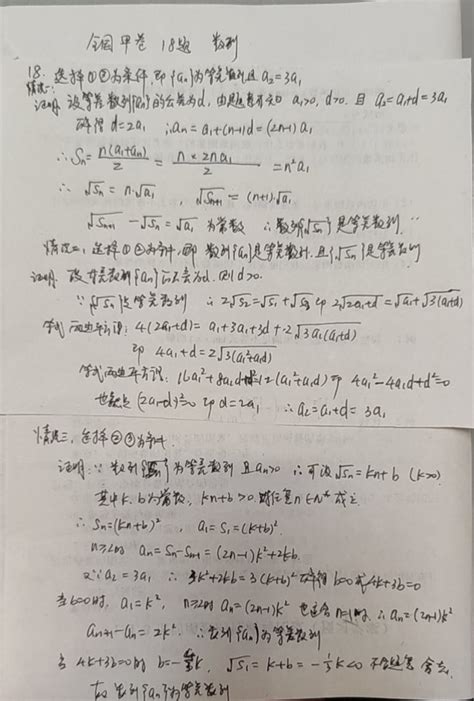 全国甲卷 18题 数列
18. 选择①②为条件,即{an}为等差数列且a2=3a1
情况一:
证明: 设等差数列{an}的公差为d, 由题意有 a1>0, d>0. 且 a2=a1+d=3a1
解得 d=2a1 ∴an=a1+(n-1)d=(2n-1)a1
∴Sn=n(a1+an)/2=n×2na1/2=n²a1
∴√Sn=n·√a1, √Sn+1=(n+1)·√a1
√Sn+1-√Sn=√a1 为常数 ∴数列{√Sn}是等差数列.
情况二, 选择①③为条件, 即 数列{an}是等差数列. 且{√Sn}是等差数列
证明 设等差数列{an}公差为d. 则d>0.
∵{√Sn}是等差数列 ∴2√S2=√S1+√S3 即 2√2a1+d=√a1+√3(a1+d)
等式两边平方得: 4(2a1+d)=a1+3a1+3d+2√3a1(a1+d)
即 4a1+d=2√3(a1²+a1d)
等式两边平方得: 16a1²+8a1d+d²=12(a1²+a1d) 即 4a1²-4a1d+d²=0
(2a1-d)²=0 即d=2a1 ∴a2=a1+d=3a1
情况三, 选择②③为条件.
证明: ∵数列{√Sn}为等差数列且an>0 ∴可设√Sn=kn+b (k>0)
其中k、b为常数, kn+b>0 对任意n∈N*成立
∴Sn=(kn+b)², a1=S1=(k+b)²
n≥2时 an=Sn-Sn-1=(2n-1)k²+2kb.
又∵a2=3a1 ∴3k²+2kb=3(k+b)² 解得 b=0或4k+3b=0
当b=0时, a1=k², n≥2时 an=(2n-1)k² 也适合n=1时, ∴an=(2n-1)k²
an+1-an=2k². ∴数列{an}为等差数列
当4k+3b=0时 b=-4/3k, √S1=k+b=-1/3k<0 不合题意 舍去.
故 数列{an}为等差数列